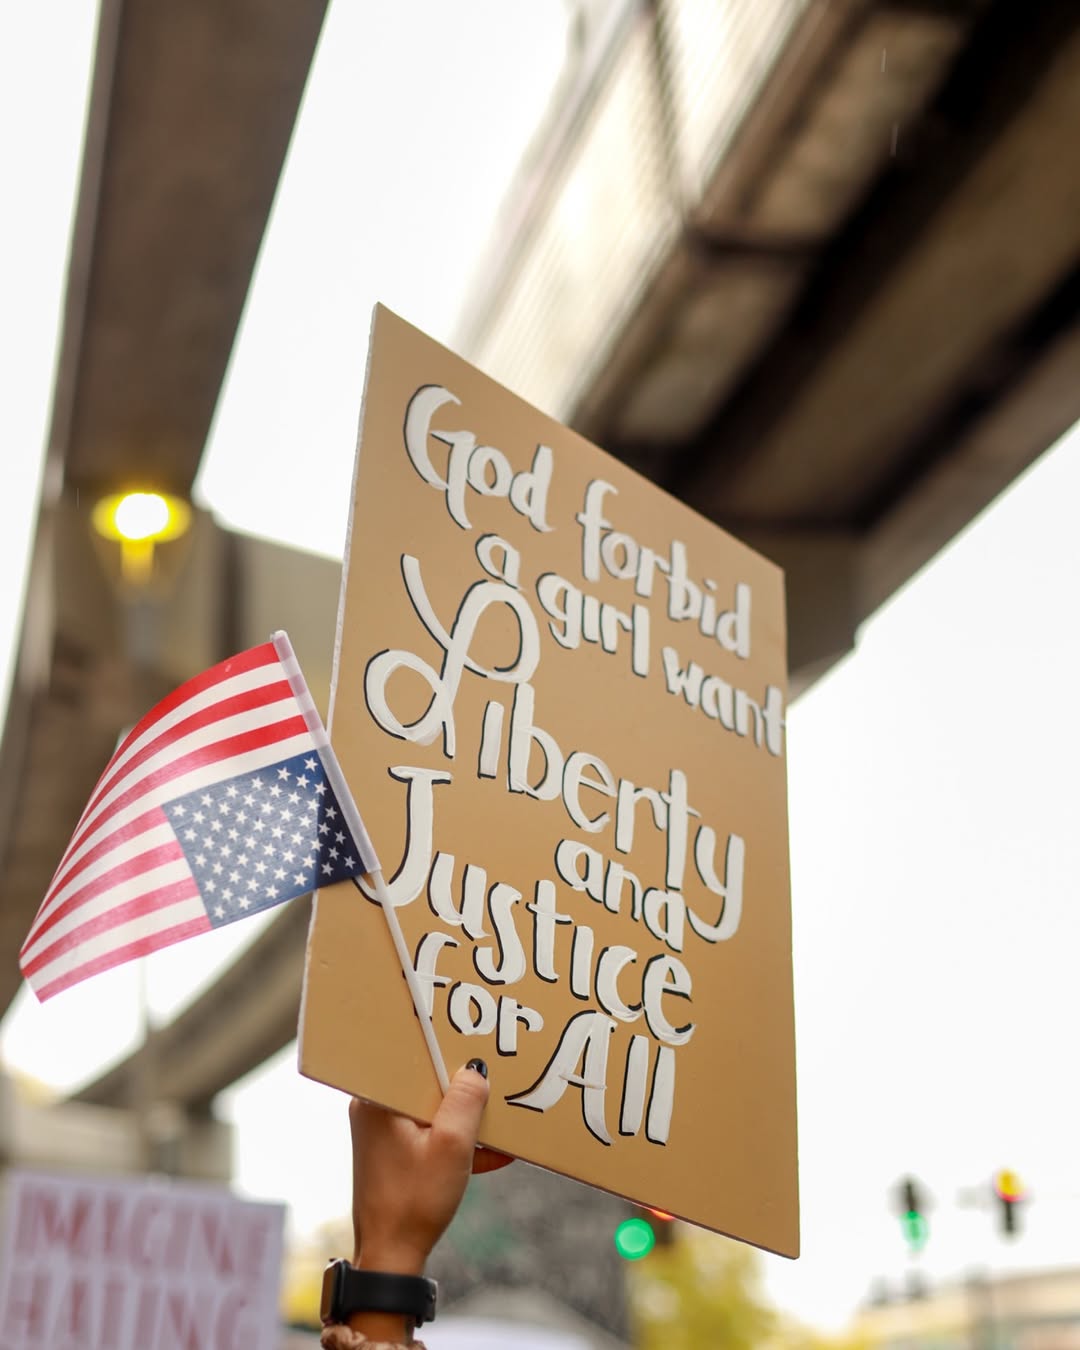 God forbid
a girl want
Liberty
and
Justice
for All
IMAGINE
HATING